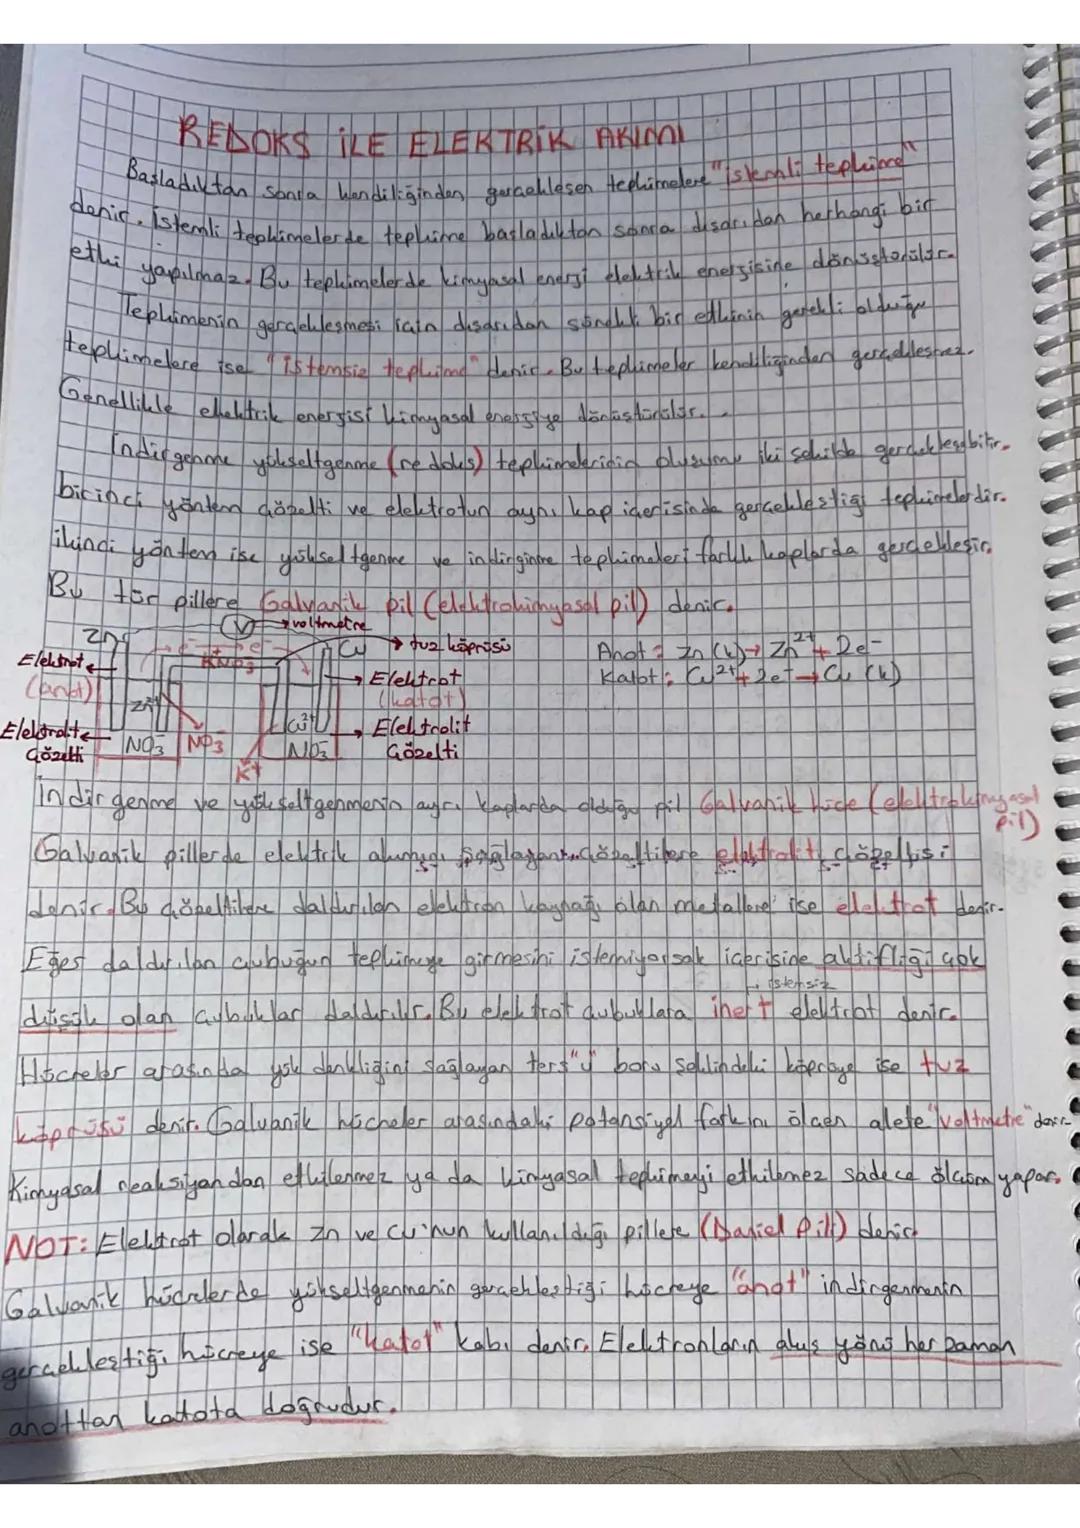 REDOKS İLE ELEKTRİK AKIMI
Başladıktan sonra kendiliğinden gerçekleşen tepkimelere "istemli tepkime"
denir. İstemli tepkimelerde tepkime başladıktan sonra dışarıdan herhangi bir
etki yapılmaz. Bu tepkimelerde kimyasal enerji elektrik enerjisine dönüştürülür.
Tepkimenin gerçekleşmesi için dışarıdan sürekli bir etkinin gerekli olduğu
tepkimelere ise "istemsiz tepkime" denir. Bu tepkimeler kendiliğinden gerçekleşmez.
Genellikle elektrik enerjisi kimyasal enerjiye dönüştürülür.
İndirgenme yükseltgenme (redoks) tepkimelerinin oluşumu iki şekilde gerçekleşebilir.
birinci yöntem çözelti ve elektrotun aynı kap içerisinde gerçekleştiği tepkimelerdir.
ikinci yöntem ise yükseltgenme ve indirginme tepkimeleri farklı kaplarda gerçekleşir.
Bu tür pillere Galvanik pil (elektrokimyasal pil) denir.
V → voltmetre
Zn e⁻ e⁻ Cu → tuz köprüsü
KNO₃
Elektrot (anot)
Elektrot (katot)
Anot: Zn (k) → Zn²⁺ + 2e⁻
Katot: Cu²⁺ + 2e⁻ → Cu (k)
Zn²⁺ Cu²⁺
Elektrolit Çözelti
NO₃⁻ NO₃⁻ NO₃⁻
Elektrolit Çözelti
K⁺
İndirgenme ve yükseltgenmenin ayrı kaplarda olduğu pil Galvanik hücre (elektrokimyasal pil)
Galvanik pillerde elektrik akımını sağlayan çözeltilere elektrolit çözeltisi
denir. Bu çözeltilere daldırılan elektron kaynağı olan metallere ise elektrot denir.
Eğer daldırılan çubuğun tepkimeye girmesini istemiyorsak içerisine aktifliği çok
→ istemsiz
düşük olan çubuklar daldırılır. Bu elektrot çubuklara inert elektrot denir.
Hücreler arasında yük denkliğini sağlayan ters "U" boru şeklindeki köprüye ise tuz
köprüsü denir. Galvanik hücreler arasındaki potansiyel farkını ölçen alete "voltmetre" denir
Kimyasal reaksiyondan etkilenmez ya da kimyasal tepkimeyi etkilemez sadece ölçüm yapar.
NOT: Elektrot olarak Zn ve Cu'nun kullanıldığı pillere (Daniel Pili) denir
Galvanik hücrelerde yükseltgenmenin gerçekleştiği hücreye "anot" indirgenmenin
gerçekleştiği hücreye ise "katot" kabı denir. Elektronların akış yönü her zaman
anottan katota doğrudur.